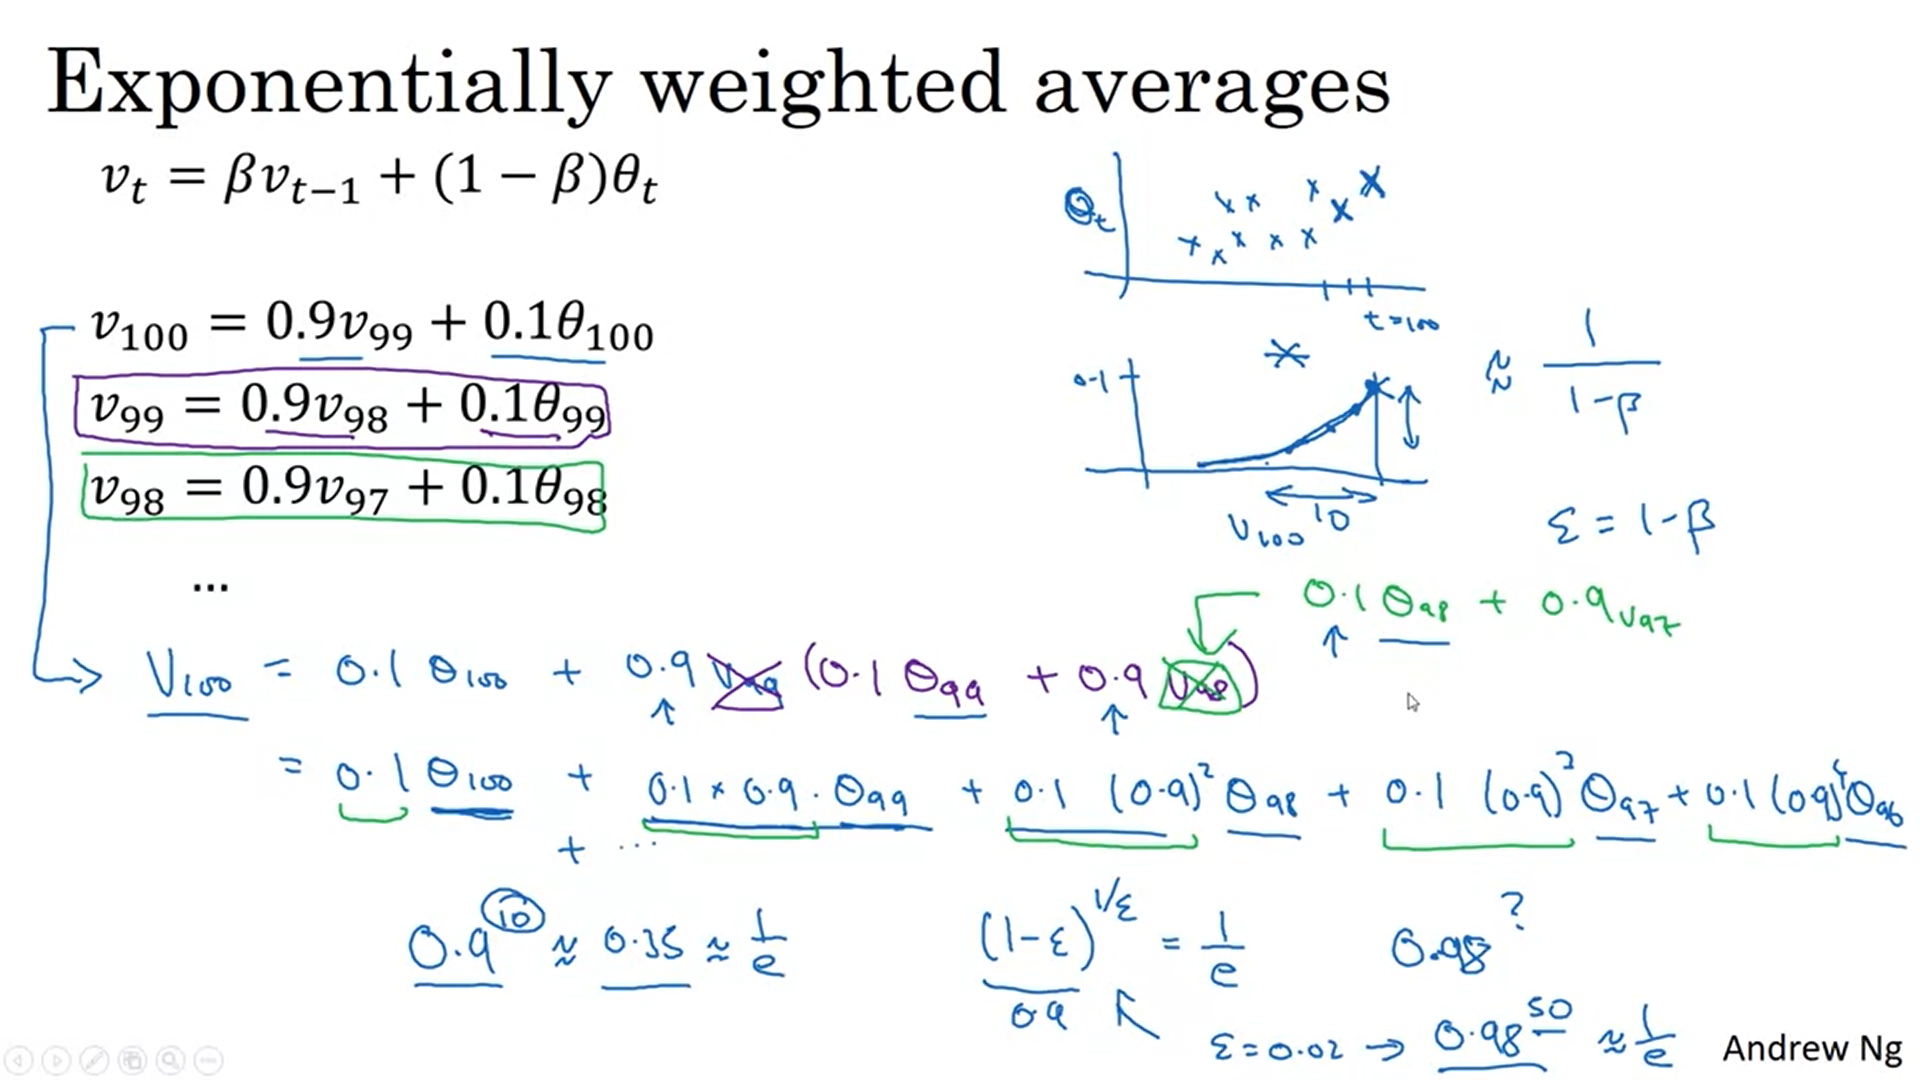 Exponentially weighted averages
v_t = βv_{t−1} + (1 − β)θ_t
θ_t
t=100
v_100 = 0.9v_99 + 0.1θ_100
0.1
≈ 1/(1-β)
v_99 = 0.9v_98 + 0.1θ_99
v_98 = 0.9v_97 + 0.1θ_98
10
V_100
ε = 1-β
...
0.1 θ_98 + 0.9 v_97
V_100 = 0.1 θ_100 + 0.9 v_99 (0.1 θ_99 + 0.9 v_98)
= 0.1 θ_100 + 0.1 × 0.9 · θ_99 + 0.1 (0.9)^2 θ_98 + 0.1 (0.9)^3 θ_97 + 0.1 (0.9)^4 θ_96
+ ...
0.9^10 ≈ 0.35 ≈ 1/e
(1-ε)^{1/ε} = 1/e
0.9
0.98^?
ε = 0.02 → 0.98^50 ≈ 1/e
Andrew Ng